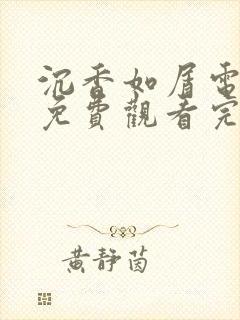 沉香如屑電
免費觀看完
黃靜茵